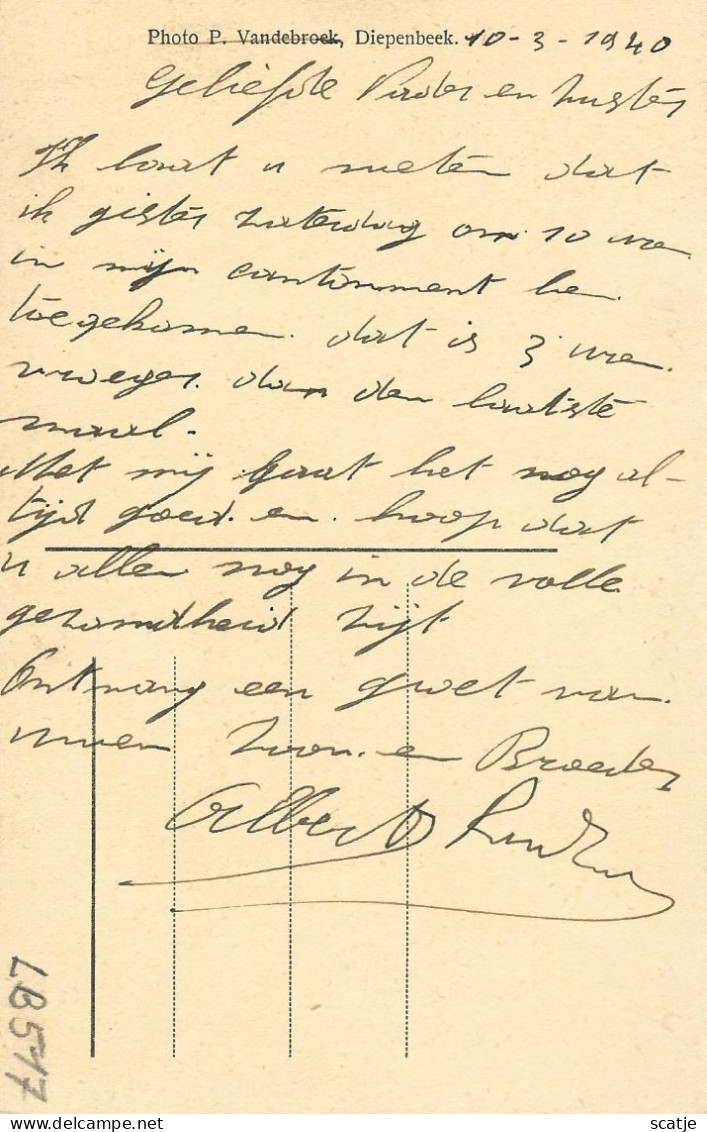 Photo P. Vandebroek, Diepenbeek. 10-3-1940
Geliefde Vader en zuster
Ik laat u weten dat
ik gister zaterdag om 10 ure
in mijn cantonnment ben
toegekomen. dat is 3 uren
vroeger dan den laatste
maal.
Met mij gaat het nog al-
tijd goed. en hoop dat
u allen nog in de volle
gezondheid zijt
Ontvang een groet van
uwen zoon en Broeder
Albert
LB517
scatje